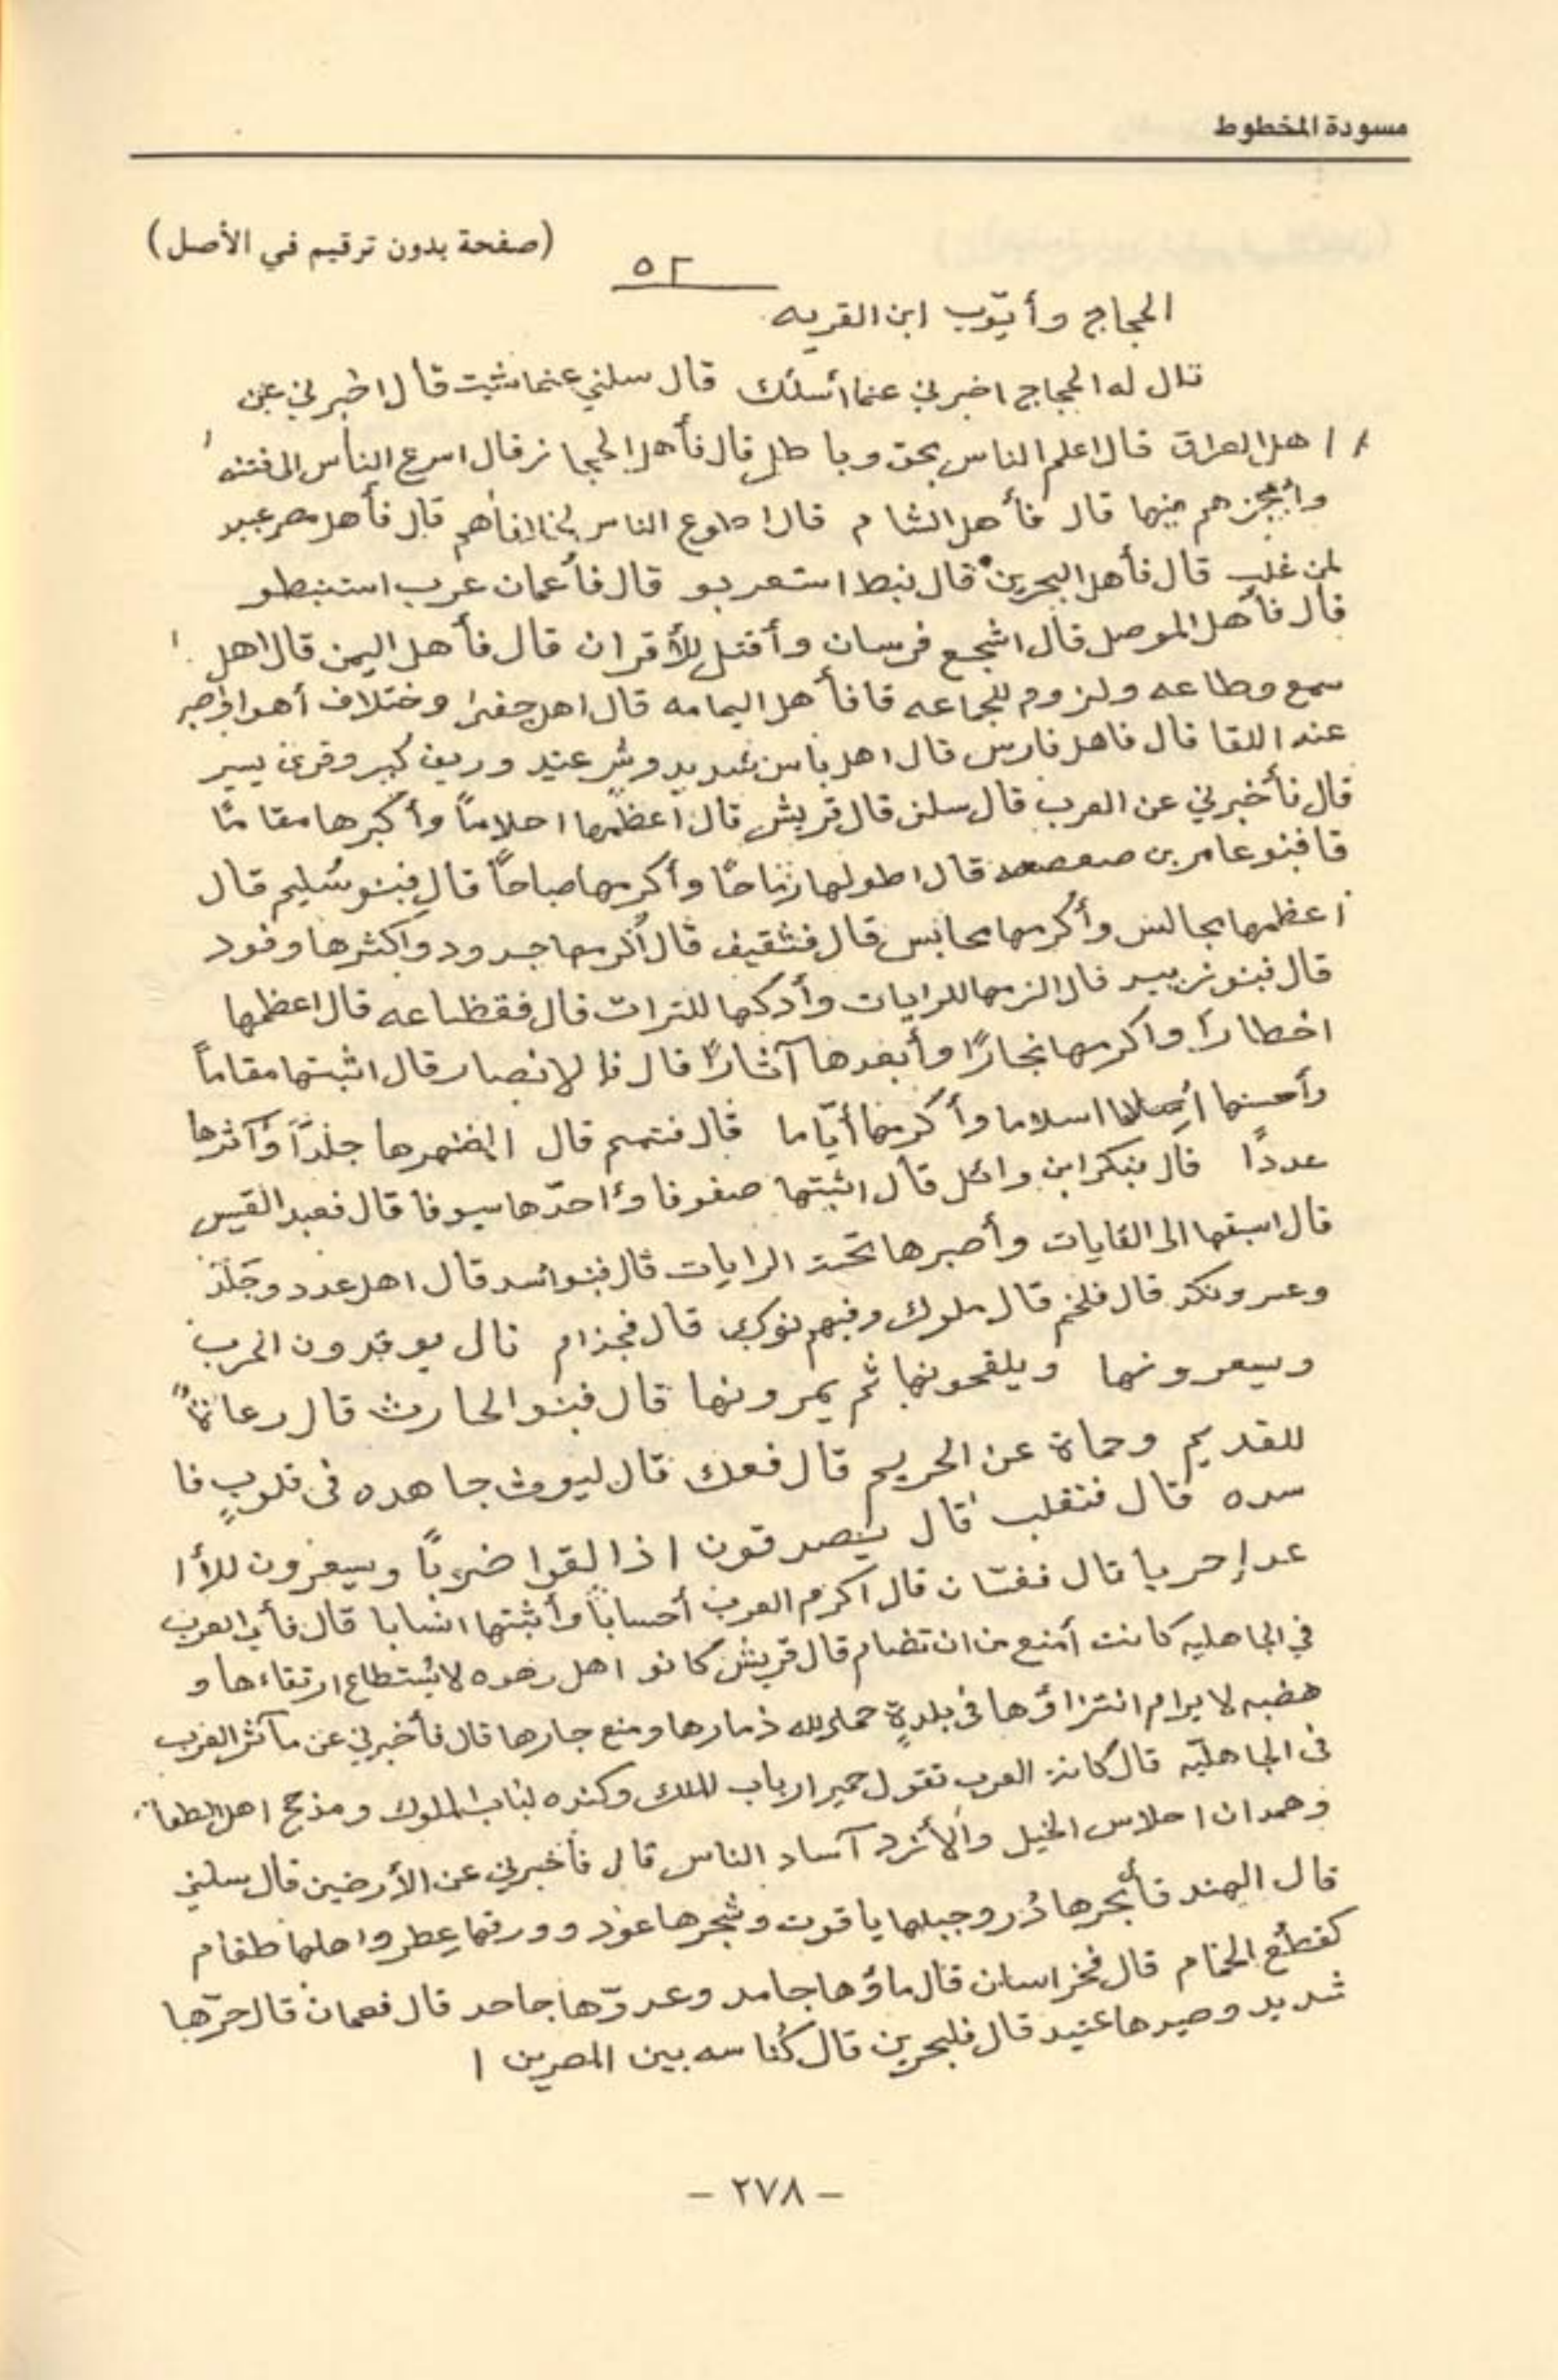 مسودة المخطوط
(صفحة بدون ترقيم في الأصل)
٥٢
الحجاج وأيّوب ابن القريه
قال له الحجاج اخبرني عنما أسئلك قال سلني عنما شئت قال اخبرني عن
اهل العراق قال اعلم الناس بحق وباطل قال فأهل الحجاز قال اسرع الناس الى فتنه
وأعجزهم فيها قال فأهل الشام قال اطوع الناس لخلفاأهم قال فأهل مصر عبيد
لمن غلب قال فأهل البحرين قال نبط استعربو قال فأعمان عرب استنبطو
قال فأهل الموصل قال اشجع فرسان وأقتل للأقران قال فأهل اليمن قال اهل
سمع وطاعه ولزوم للجماعه قا فأهل اليمامه قال اهل جفىً وختلاف أهوا
عند اللقا قال فاهل فارس قال اهل باس شديد وشر عتيد وريف كبير وقرىً يسير
قال فأخبرني عن العرب قال سلني قال قريش قال أعظمها احلاماً وأكرها مقامًا
قا فبنو عامر بن صعصعه قال اطولها رماحًا وأكرمها صباحاً قال فبنو سُليم قال
اعظمها مجالس وأكرمها محابس قال فثقيف قال أكرمها جدود واكثرها وفود
قال فبنو زبيد قال الزمها للرايات وأدركها للترات قال فقظاعه قال اعظمها
اخطاراً واكرمها نجارًا وأبعدها آثارًا قال فالانصار قال اثبتها مقاماً
وأحسنها اسلاما وأكرمها أيّاما قال فتميم قال اظهرها جلدًا وأكثرها
عددًا قال فبكر ابن وائل قال اثبتها صفوفا وأحدّها سيوفا قال فعبد القيس
قال اسبقها الى الغايات وأصبرها تحت الرايات قال فبنو أسد قال اهل عدد وجَلَد
وعسر ونكد قال فلخم قال ملوك وفيهم نوك قال فجذام قال يوقدون الحرب
ويسعرونها ويلقحونها ثم يمرونها قال فبنو الحارث قال رعاةً
للقديم وحماة عن الحريم قال فعك قال ليوث جاهده في قلوبٍ فا
سده قال فتغلب قال يصدقون اذا لقوا ضرباً ويسعرون للأ ا
عدا حربا قال فغسّان قال اكرم العرب أحساباً وأثبتها انسابا قال فأي العرب
في الجاهليه كانت أمنع من ان تضام قال قريش كانو اهل رهوه لا يُستطاع ارتقاءها و
هضبه لا يرام انتزاؤها في بلدةٍ حما الله ذمارها ومنع جارها قال فأخبرني عن مآثر العرب
في الجاهليّه قال كانت العرب تقول حمير ارباب الملك وكنده لباب الملوك ومذحج اهل الطعان
وهمدان احلاس الخيل والأزد آساد الناس قال فأخبرني عن الأرضين قال سلني
قال الهند فأبحرها دُر وجبلها ياقوت وشجرها عود وورقها عِطر واهلها طغام
كقطع الحمام قال فخراسان قال ماؤها جامد وعدوّها جاحد قال فعمان قال حرّها
شديد وصيدها عتيد قال فلبحرين قال كُناسه بين المصرين ا
– ٢٧٨ –